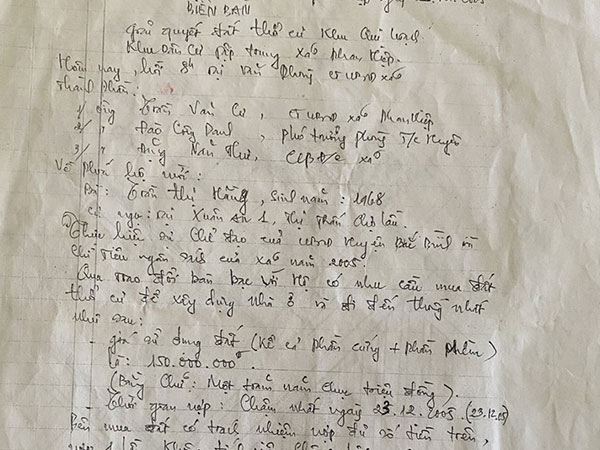 BIÊN BẢN
giải quyết đất thổ cư Khu Qui hoạch
Khu Dân Cư tập trung xã Phan Hiệp.
Hôm nay, hồi 8h tại văn phòng UBND xã
Thành phần:
1/ Ông Trần Văn Cư, CT UBND xã Phan Hiệp
2/ " Đào Công Danh, Phó trưởng phòng T/c huyện
3/ " Đặng Như, CBĐ/c xã
Về phía hộ mới:
Bà: Trần Thị Hằng, sinh năm: 1968
Cư ngụ: tại Xuân An 1, Thị Trấn Chợ Lầu.
Thực hiện sự chỉ đạo của UBND huyện Bắc Bình và
chỉ tiêu ngân sách của xã năm 2005.
Qua trao đổi bàn bạc với Hộ có nhu cầu mua đất
thổ cư để xây dựng nhà ở và đi đến thống nhất
như sau:
- giá sử dụng đất (kể cả phần cứng + phần mềm)
là: 150.000.000đ
(Bằng chữ: Một trăm năm chục triệu đồng).
- Thời gian nộp: Chậm nhất ngày 23.12.2005. (23.12.05)
Bên mua đất có trách nhiệm nộp đủ số tiền trên,